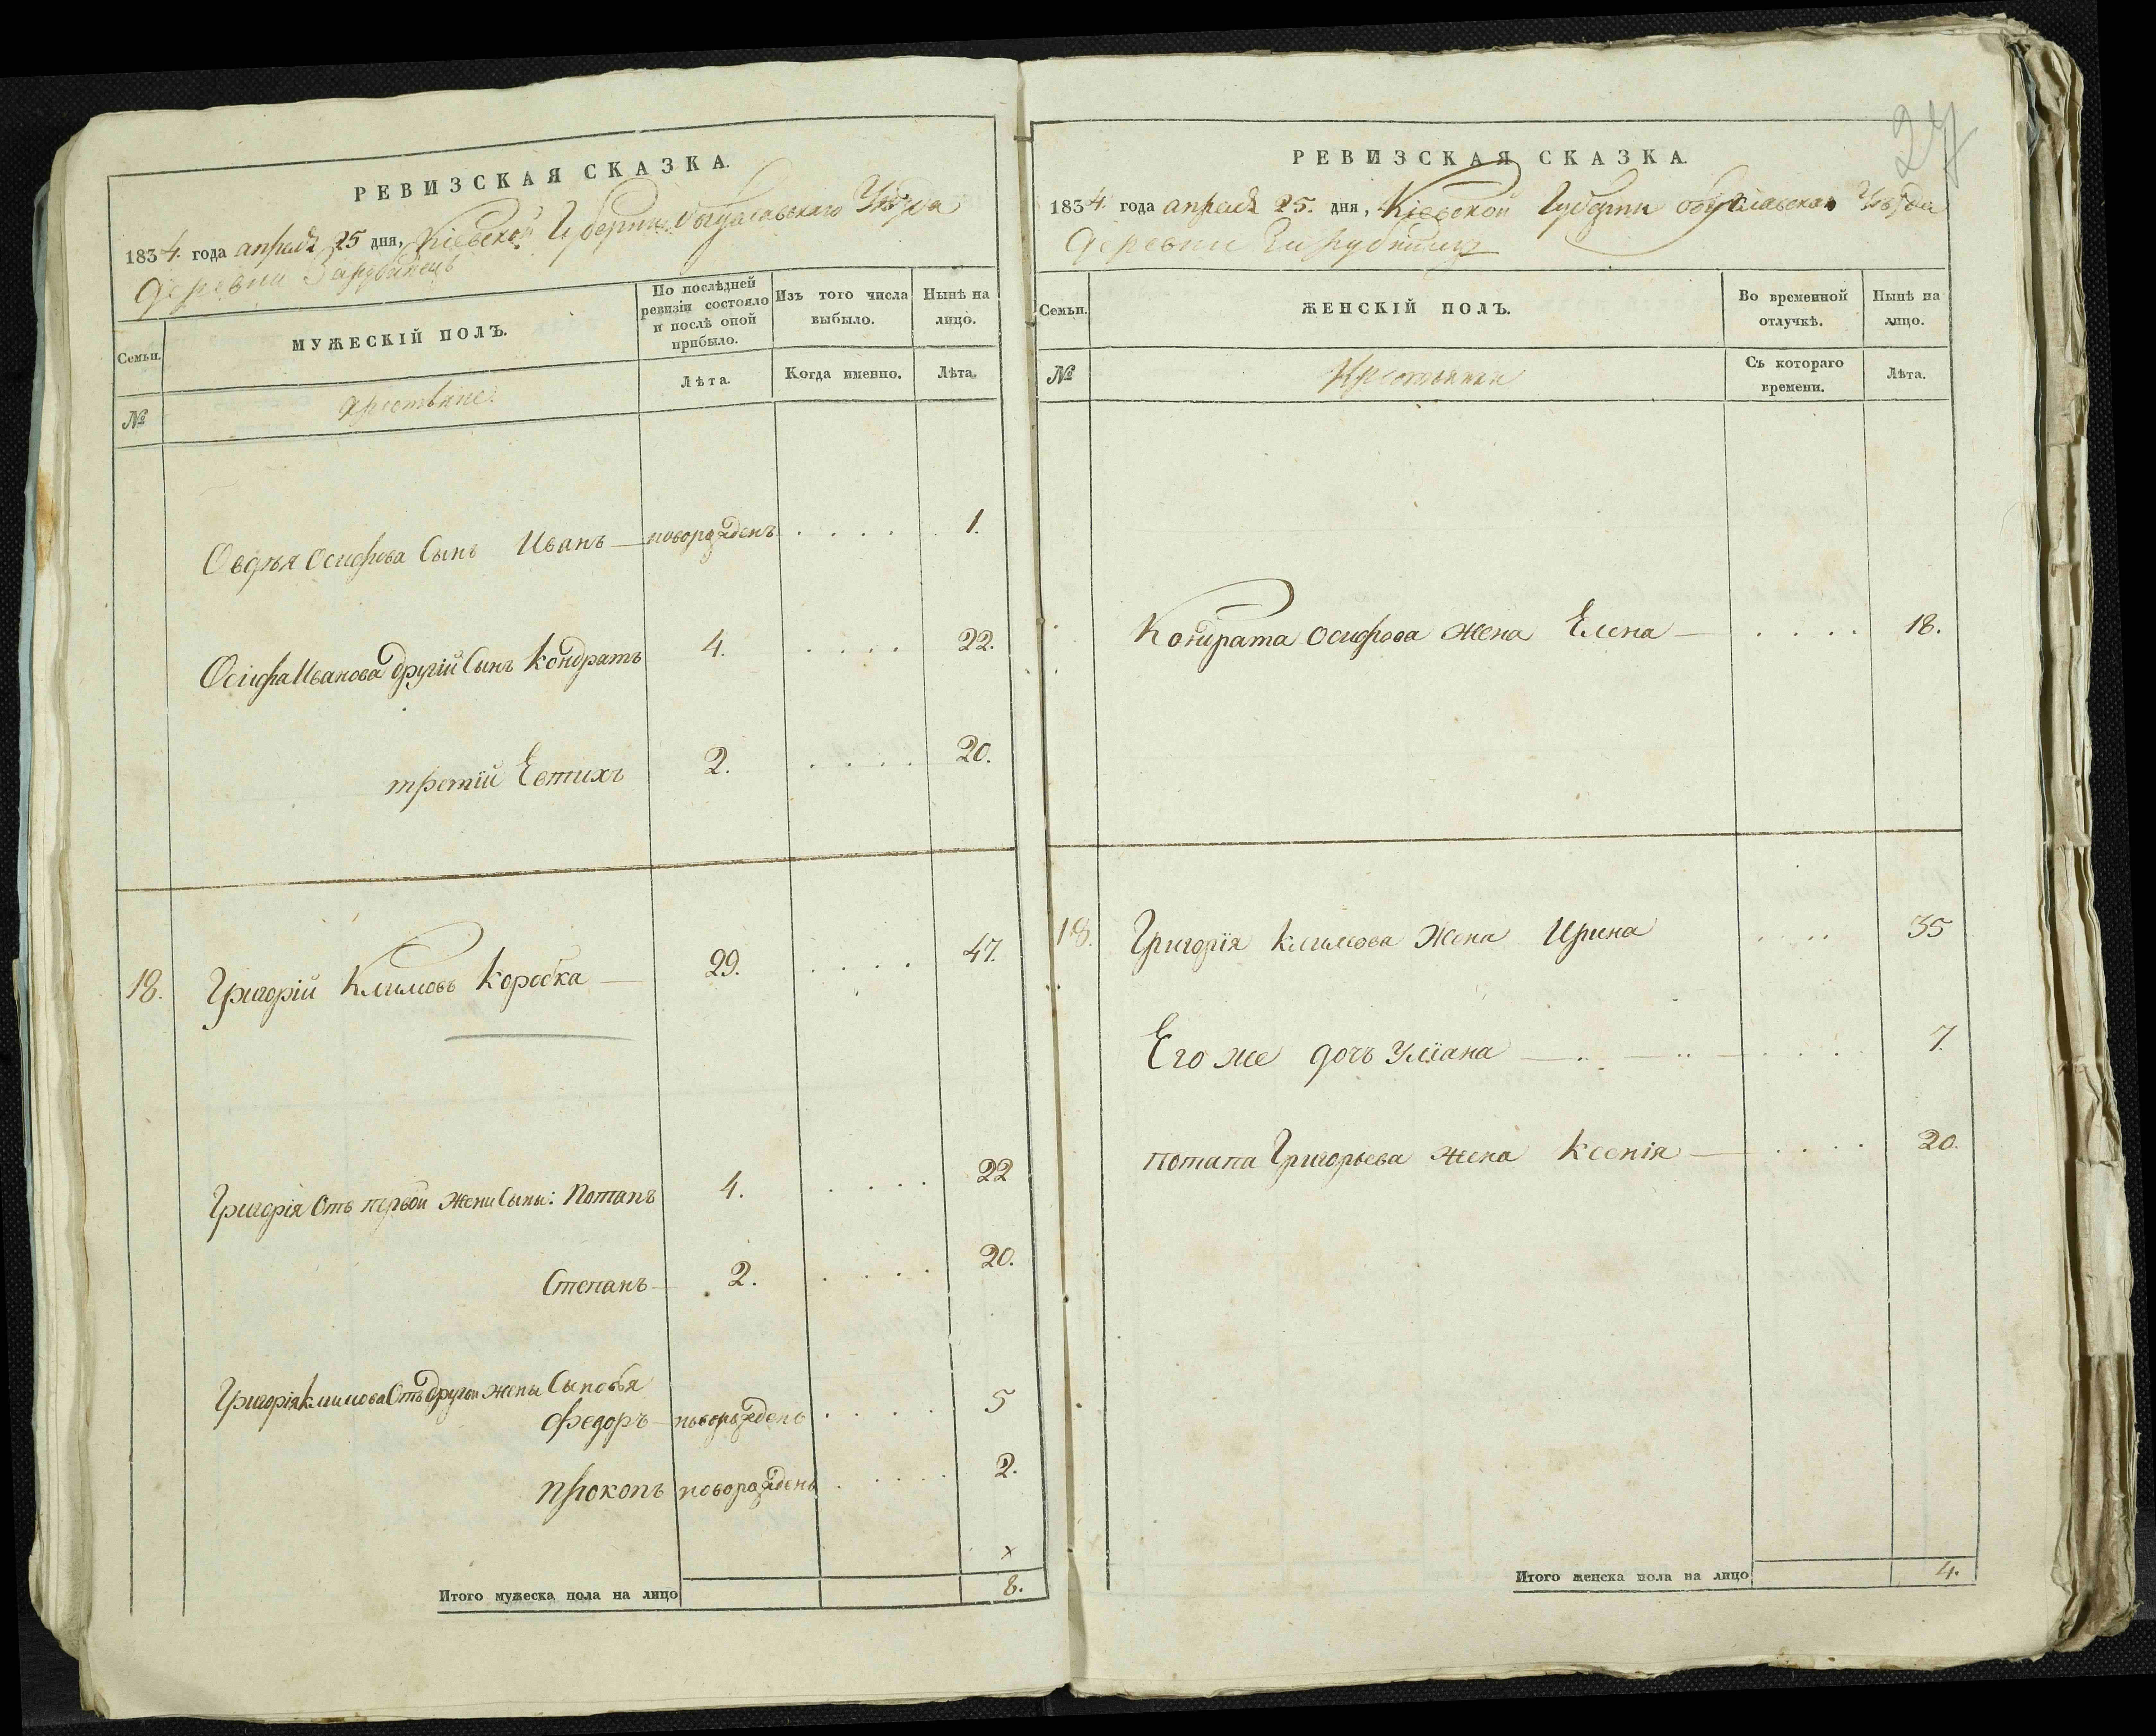 РЕВИЗСКАЯ СКАЗКА.
1834. года апреля 25 дня, Кіевской Губерніи Богуславскаго Уезда
деревни
Семьи.
МУЖЕСКІЙ ПОЛЪ.
По послѣдней ревизіи состояло и послѣ оной прибыло.
Изъ того числа выбыло.
Нынѣ на лицо.
№
Крестьяне.
Лѣта.
Когда именно.
Лѣта.
Овдѣя Осифова Сынъ Иванъ — новорожденъ . . . . 1.
Осифа Иванова другій Сынъ Кондратъ 4. . . . . 22.
третій Евтихъ 2. . . . . 20.
18. Григорій Климовъ Коробка — 29. . . . . 47.
Григорія Отъ первой жени Сыны: Потапъ 4. . . . . 22
Степанъ — 2. . . . . 20.
Григорія Климова Отъ другой жены Сыновья
Федоръ — новорожденъ . . . . 5
Прокопъ новорожденъ . . . . 2.
×
Итого мужеска пола на лицо 8.
27
РЕВИЗСКАЯ СКАЗКА.
1834. года апреля 25. дня, Кіевской Губерни Уезда
деревни
Семьи.
ЖЕНСКІЙ ПОЛЪ.
Во временной отлучкѣ.
Нынѣ на лицо.
№
Крестьянки
Съ котораго времени.
Лѣта.
Кондрата Осифова жена Елена — . . . . 18.
18. Григорія Климова жена Ирина . . . . 35
Его же дочь Уліана — .. — .. — . . . . 7.
Потапа Григорьева жена Ксенія — . . . . 20.
Итого женска пола на лицо 4.